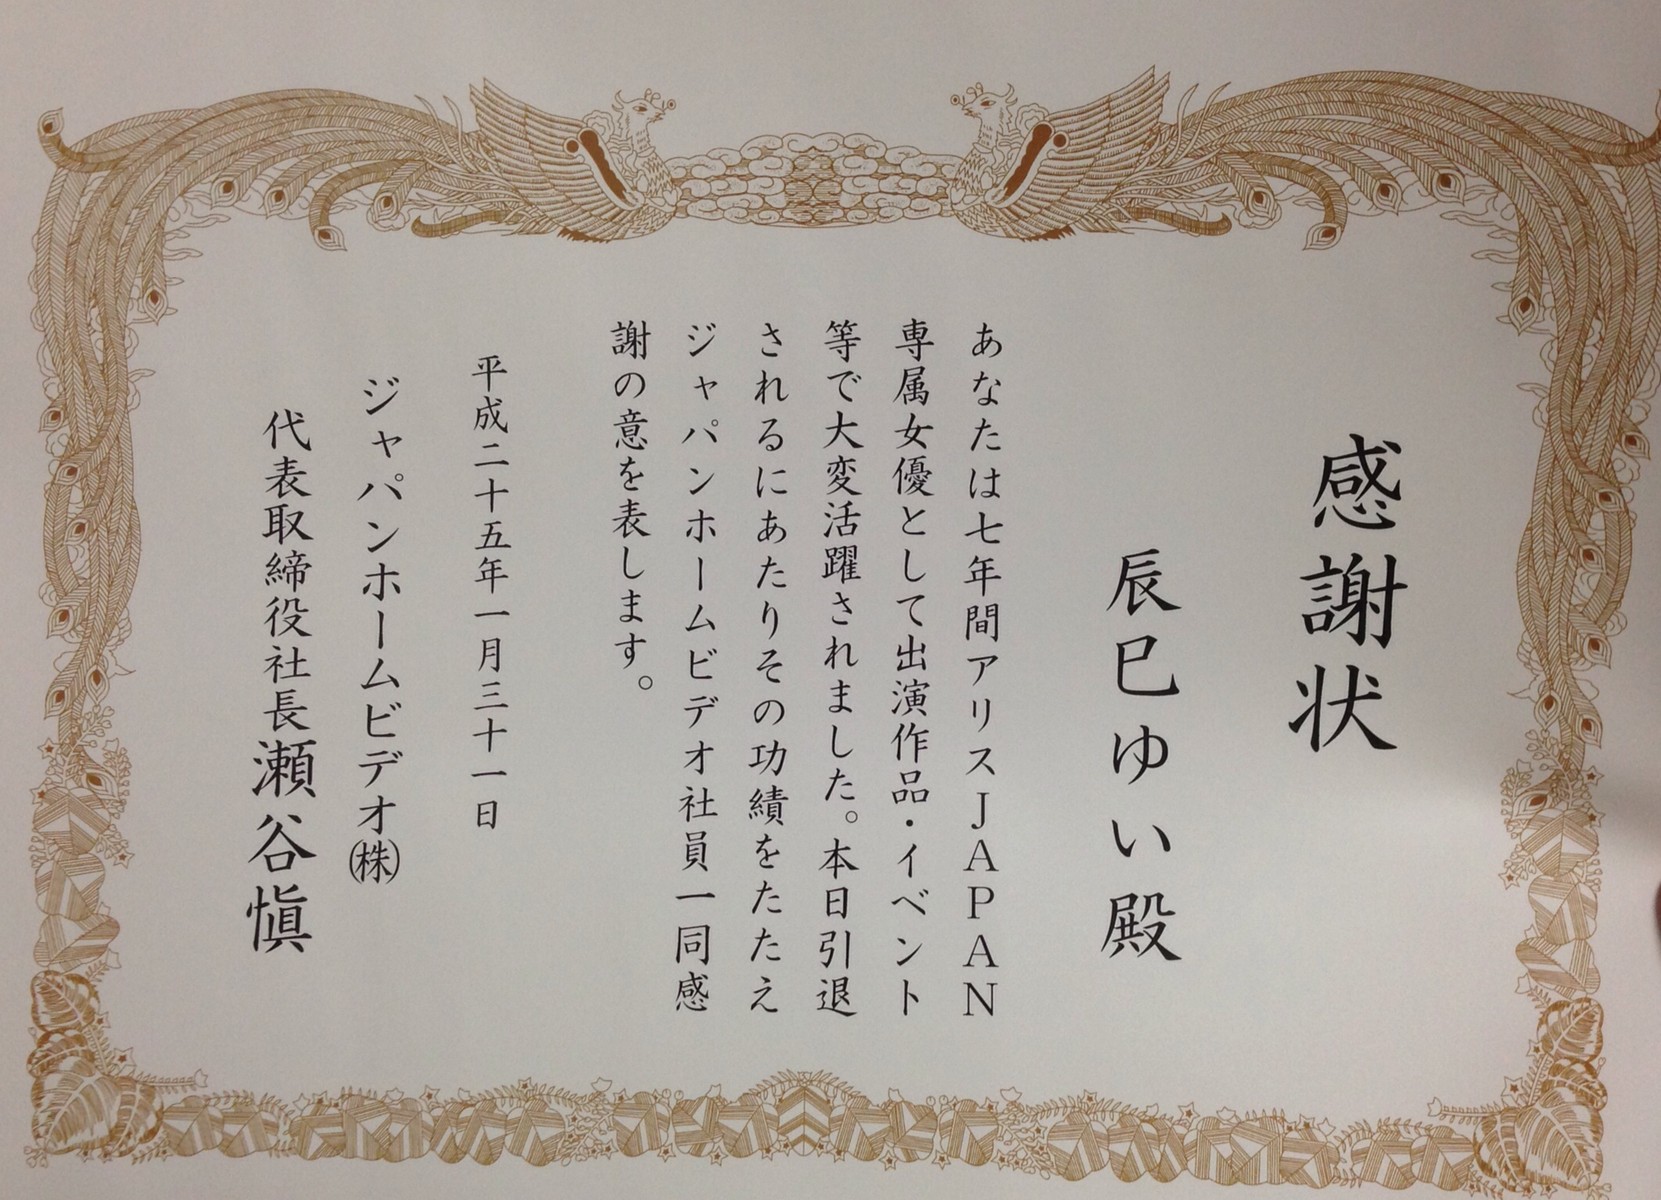 感謝状
辰巳ゆい殿
あなたは七年間アリスJAPAN
専属女優として出演作品・イベント
等で大変活躍されました。本日引退
されるにあたりその功績をたたえ
ジャパンホームビデオ社員一同感
謝の意を表します。
平成二十五年一月三十一日
ジャパンホームビデオ㈱
代表取締役社長瀬谷愼